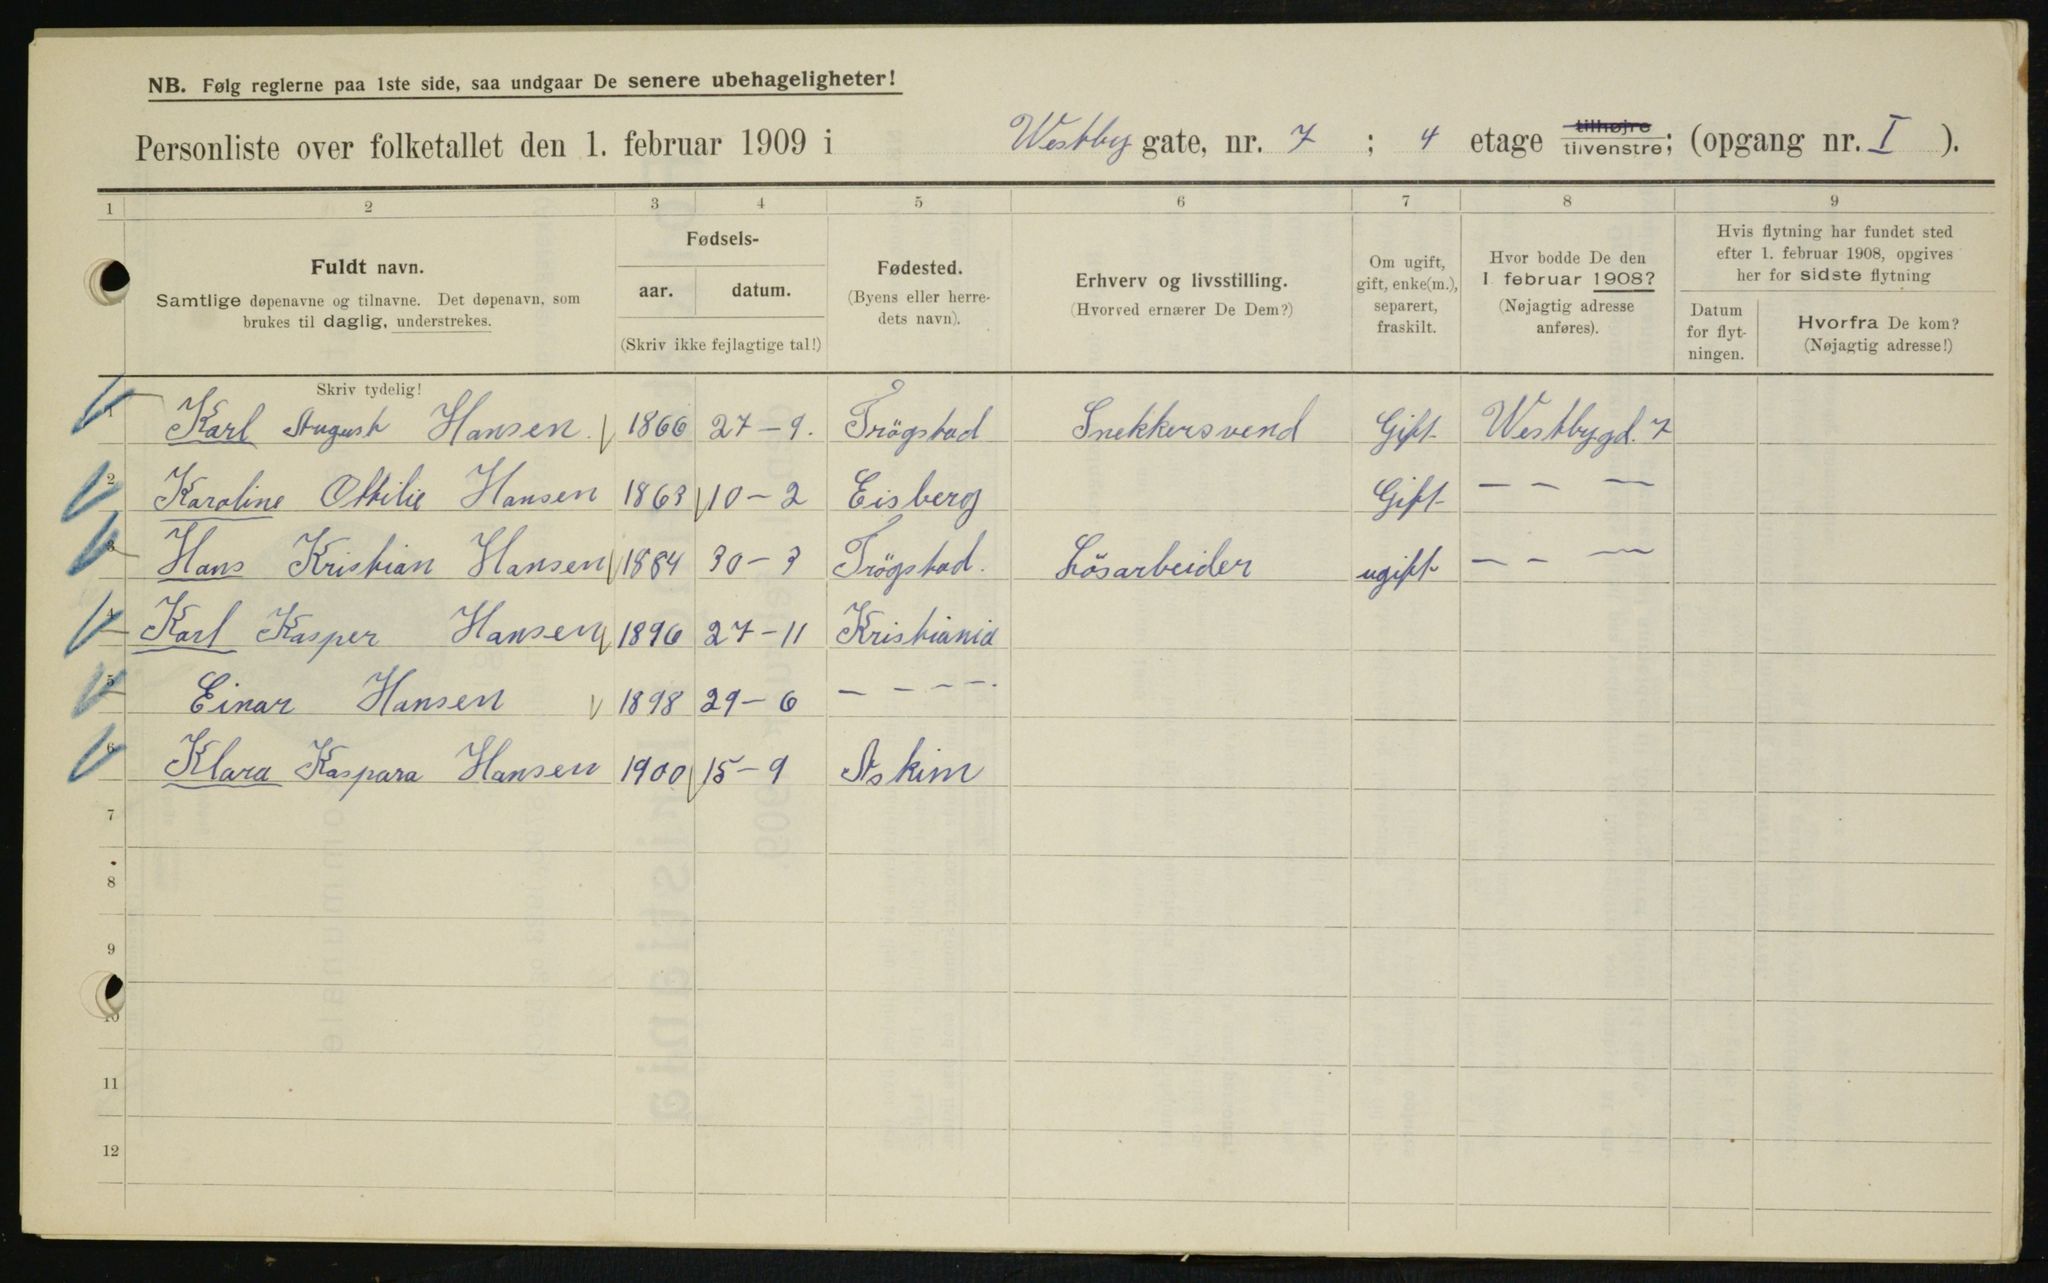 NB. Følg reglerne paa 1ste side, saa undgaar De senere ubehageligheter!
Personliste over folketallet den 1. februar 1909 i Westby gate, nr. 7 ; 4 etage tilhøjre tilvenstre; (opgang nr. I ).
1 2 3 4 5 6 7 8 9
Fuldt navn.
Samtlige døpenavne og tilnavne. Det døpenavn, som
brukes til daglig, understrekes.
Fødsels-
aar. datum.
(Skriv ikke fejlagtige tal!)
Fødested.
(Byens eller herre-
dets navn).
Erhverv og livsstilling.
(Hvorved ernærer De Dem?)
Om ugift,
gift, enke(m.),
separert,
fraskilt.
Hvor bodde De den
1 februar 1908?
(Nøjagtig adresse
anføres).
Hvis flytning har fundet sted
efter 1. februar 1908, opgives
her for sidste flytning
Datum
for flyt-
ningen.
Hvorfra De kom?
(Nøjagtig adresse!)
Skriv tydelig!
1 Karl August Hansen. 1866 27-9. Trögstad Snekkersvend Gift Westbygd. 7
2 Karoline Othilie Hansen 1863 10-2 Eisberg Gift — — —
3 Hans Kristian Hansen 1884 30-3 Trögstad. Lösarbeider ugift — — —
4 Karl Kasper Hansen 1896 27-11 Kristiania
5 Einar Hansen 1898 29-6 — — — —.
6 Klara Kaspara Hansen 1900 15-9 Askim
7
8
9
10
11
12